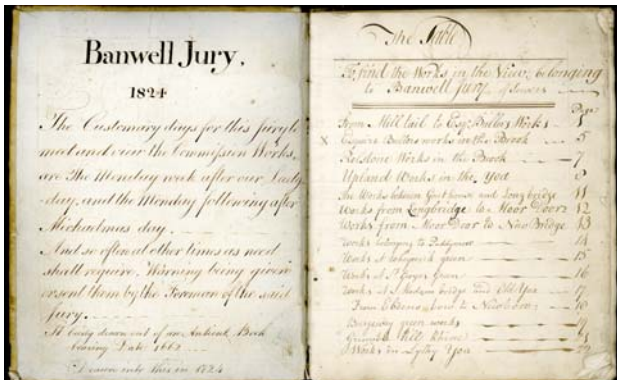 Banwell Jury,
1824
The Customary days for this Jury to
meet and view the Commission Works,
are The Monday week after our Lady
day, and the Monday following after
Michaelmas day.
And so often at other times as need
shall require. Warning being given
or sent them by the Foreman of the said
Jury.
It being drawn out of an Antient Book
bearing Date 1662
Drawn into this in 1824
The Table
To find the Works in the View, belonging
to Banwell Jury of Sewers
Page
From Mill tail to Esqr Butlers Works 1
X Esquire Butlers works in the Brook 5
Works in the Brook 7
Upland Works in the Yoa 8
The Works between Gout house and Longbridge 11
Works from Longbridge to Moor Door 12
Works from Moor Door to New Bridge 13
Works belonging to 14
Works at green 15
Works at St Georges green 16
Works at bridge and Old Yoa 17
From to 18
green works 19
Rhine 21
Works in Yoa 22